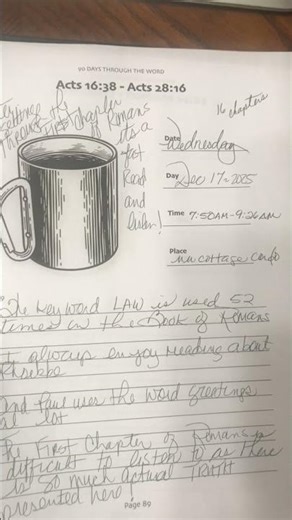 90 DAYS THROUGH THE WORD
Acts 16:38 - Acts 28:16
sentence
through the
first chapter
of Romans
its a
fast
Read
and
listen!
16 chapters
Date
Wednesday
Day Dec 17-2025
Time 7:50AM-9:26AM
Place
cottage condo
The key word LAW is used 52
times in the Book of Romans
I always enjoy reading about
Phoebe
And Paul uses the word greetings
a lot
The First Chapter of Romans is
difficult to listen to as there
is so much actual TRUTH
presented here!
Page 89